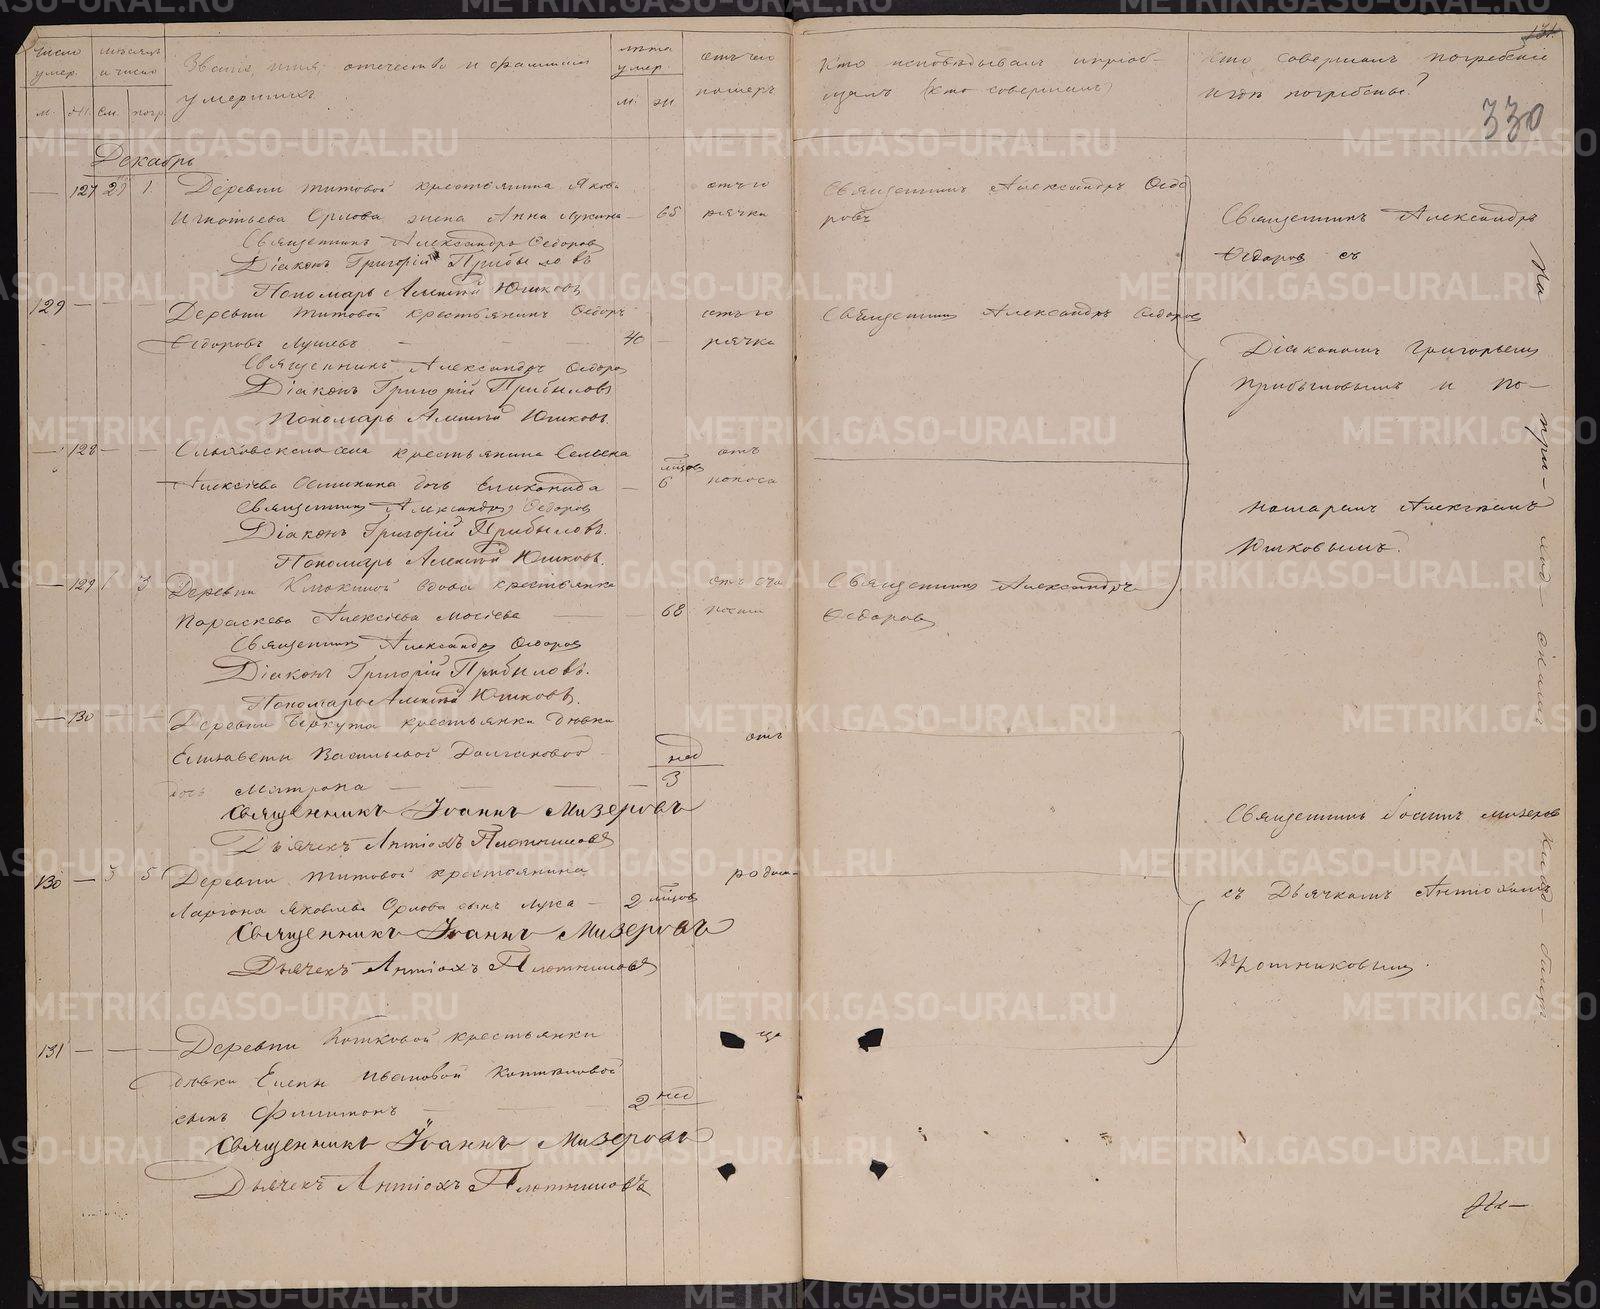 131.
330
Число умер.
мѣсяцъ и число
Званіе, имя, отечество и фамилія умершихъ
лѣта умер.
отъ чего померъ
Кто исповѣдывалъ и пріобщалъ (кто совершилъ)
Кто совершалъ погребеніе и гдѣ погребены?
м. ж. см. погр.
м. ж.
Декабрь
— 127 29 1 Деревни Титовой крестьянина Якова отъ го
Игнатьева Орлова жена Анна Лукина — 65 рячки
Священникъ Александръ Ѳедоровъ
Діаконъ Григорій Прибыловъ
Пономарь Алексѣй Юшковъ
129 — — — Деревни Титовой крестьянинъ Ѳедоръ отъ го
Ѳедоровъ Лушевъ — — — 40 — рячки
Священникъ Александръ Ѳедоровъ
Діаконъ Григорій Прибыловъ
Пономарь Алексѣй Юшковъ.
— 128 — — села крестьянина отъ
Алексѣева дочь — мѣсяцов 6 поноса
Священникъ Александръ Ѳедоровъ
Діаконъ Григорій Прибыловъ.
Пономарь Алексѣй Юшковъ.
— 129 1 3 Деревни вдова крестьянка отъ
Параскева Алексѣева — 68
Священникъ Александръ Ѳедоровъ
Діаконъ Григорій Прибыловъ.
Пономарь Алексѣй Юшковъ.
— 130 — — Деревни крестьянки дѣвки отъ
Елизаветы Васильевой нед
дочь Матрона — — — — 3
Священникъ Іоаннъ Мизеровъ
Дьячекъ Антіохъ Плотниковъ
130 — 3 5 Деревни Титовой крестьянина родим-
Ларіона Яковлева Орлова сынъ Лука — 2 мѣсяцов
Священникъ Іоаннъ Мизеровъ
Дьячекъ Антіохъ Плотниковъ
131 — — — Деревни крестьянки ца
дѣвки Елены Ивановой
сынъ Филимонъ — — — 2 нед
Священникъ Іоаннъ Мизеровъ
Дьячекъ Антіохъ Плотниковъ
Священникъ Александръ Ѳедо
ровъ
Священникъ Александръ Ѳедоровъ
Священникъ Александръ
Ѳедоровъ
Священникъ Александръ
Ѳедоровъ съ
Діакономъ Григорьемъ
Прибыловымъ и По-
номаремъ Алексѣемъ
Юшковымъ.
Священникъ Іоаннъ Мизеровъ
съ Дьячкомъ Антіохомъ
Плотниковымъ.
На при-
METRIKI.GASO-URAL.RU